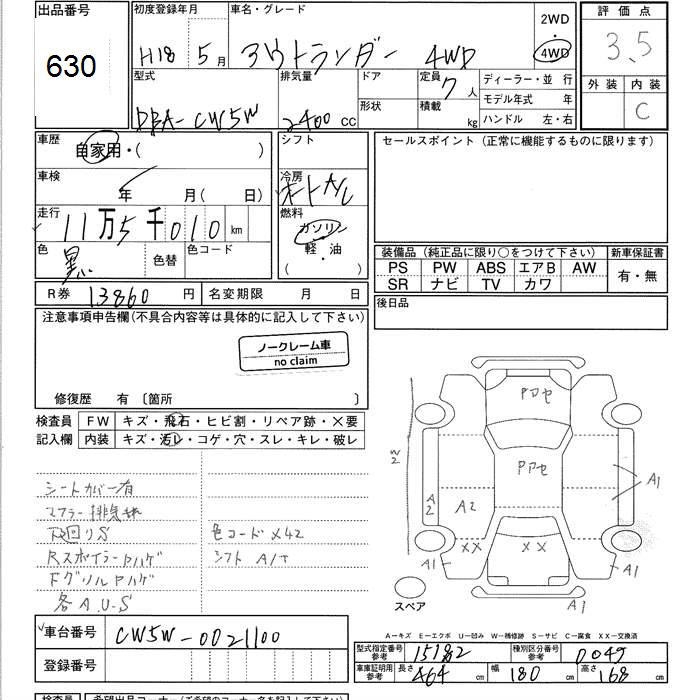 出品番号
630
初度登録年月 H18 5月
車名・グレード アウトランダー 4WD
2WD・4WD
評価点
3.5
外装 内装
C
型式 DBA-CW5W
排気量 2400 cc
ドア
形状
定員 7人
積載 kg
ディーラー・並行
モデル年式 年
ハンドル 左・右
車歴 自家用・( )
車検 年 月( 日)
走行 11万5千010 km
色 黒 色替 色コード
シフト
冷房 オートA/C
燃料 ガソリン・軽油
( )
セールスポイント(正常に機能するものに限ります)
装備品(純正品に限り○をつけて下さい)
PS PW ABS エアB AW
SR ナビ TV カワ
新車保証書
有・無
後日品
R券 13860円 名変期限 月 日
注意事項申告欄(不具合内容等は具体的に記入して下さい)
ノークレーム車
no claim
修復歴 有〔箇所 〕
検査員記入欄
FW キズ・飛石・ヒビ割・リペア跡・×要
内装 キズ・汚レ・コゲ・穴・スレ・キレ・破レ
シートカバー有
マフラー排気
下回りS
Rスポイラーハゲ
Fグリルハゲ
各A.U.S
色コード X42
シフト A/T
W2
アセ
アセ
A2
A2
XX
XX
A1
A1
A1
A1
スペア
A-キズ E-エクボ U-凹み W-補修跡 S-サビ C-腐食 XX-交換済
車台番号 CW5W-0021100
登録番号
型式指定番号 参考 15182
種別区分番号 参考 0049
車庫証明用 参考 長さ 464cm 幅 180cm 高さ 168cm